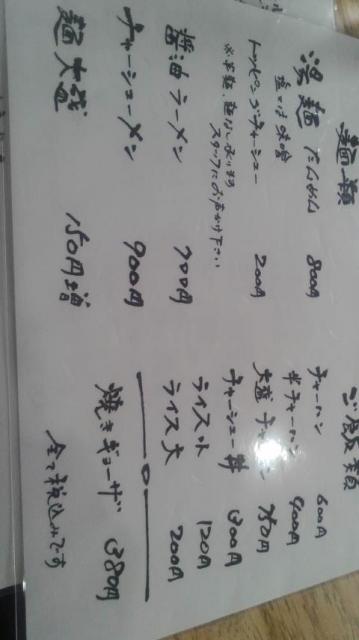 麺類
湯麺 たんめん 800円
塩又は味噌
トッピングチャーシュー 200円
スタッフにお声かけ下さい
醤油ラーメン 700円
チャーシューメン 900円
麺大盛 150円増
ご飯類
チャーハン 600円
半チャーハン 400円
大盛チャーハン 750円
チャーシュー丼 300円
ライス小 120円
ライス大 200円
焼きギョーザ 380円
全て税込みです